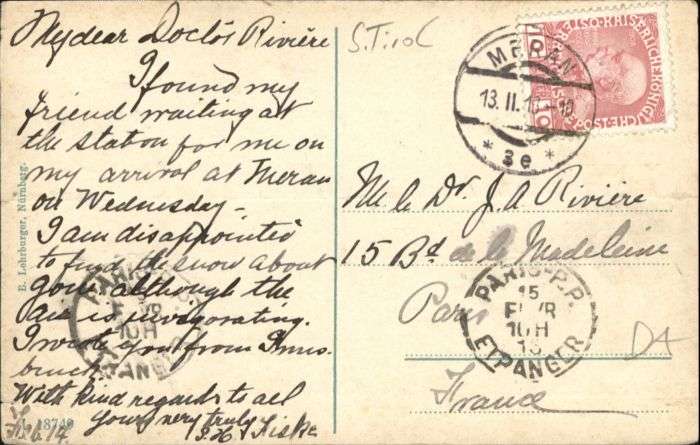 My dear Doctor Rivière
I found my
friend waiting at
the station for me on
my arrival at Meran
on Wednesday -
I am disappointed
to find the snow about
gone although the
air is invigorating.
I wrote you from Inns-
bruck
With kind regards to all
yours very truly
Fiske
S.Tirol
MERAN
13.II.10-10
* 3e *
KAISERLICHE KÖNIGLICHE
ÖSTERR. POST
10 10
M. le Dr. J. A Rivière
15 Bd de la Madeleine
Paris
France
PARIS-P.P.
15
FEVR
10H
10
ETRANGER
PARIS
10H
ETRANGER
D4
B. Lehrburger, Nürnberg.
18740